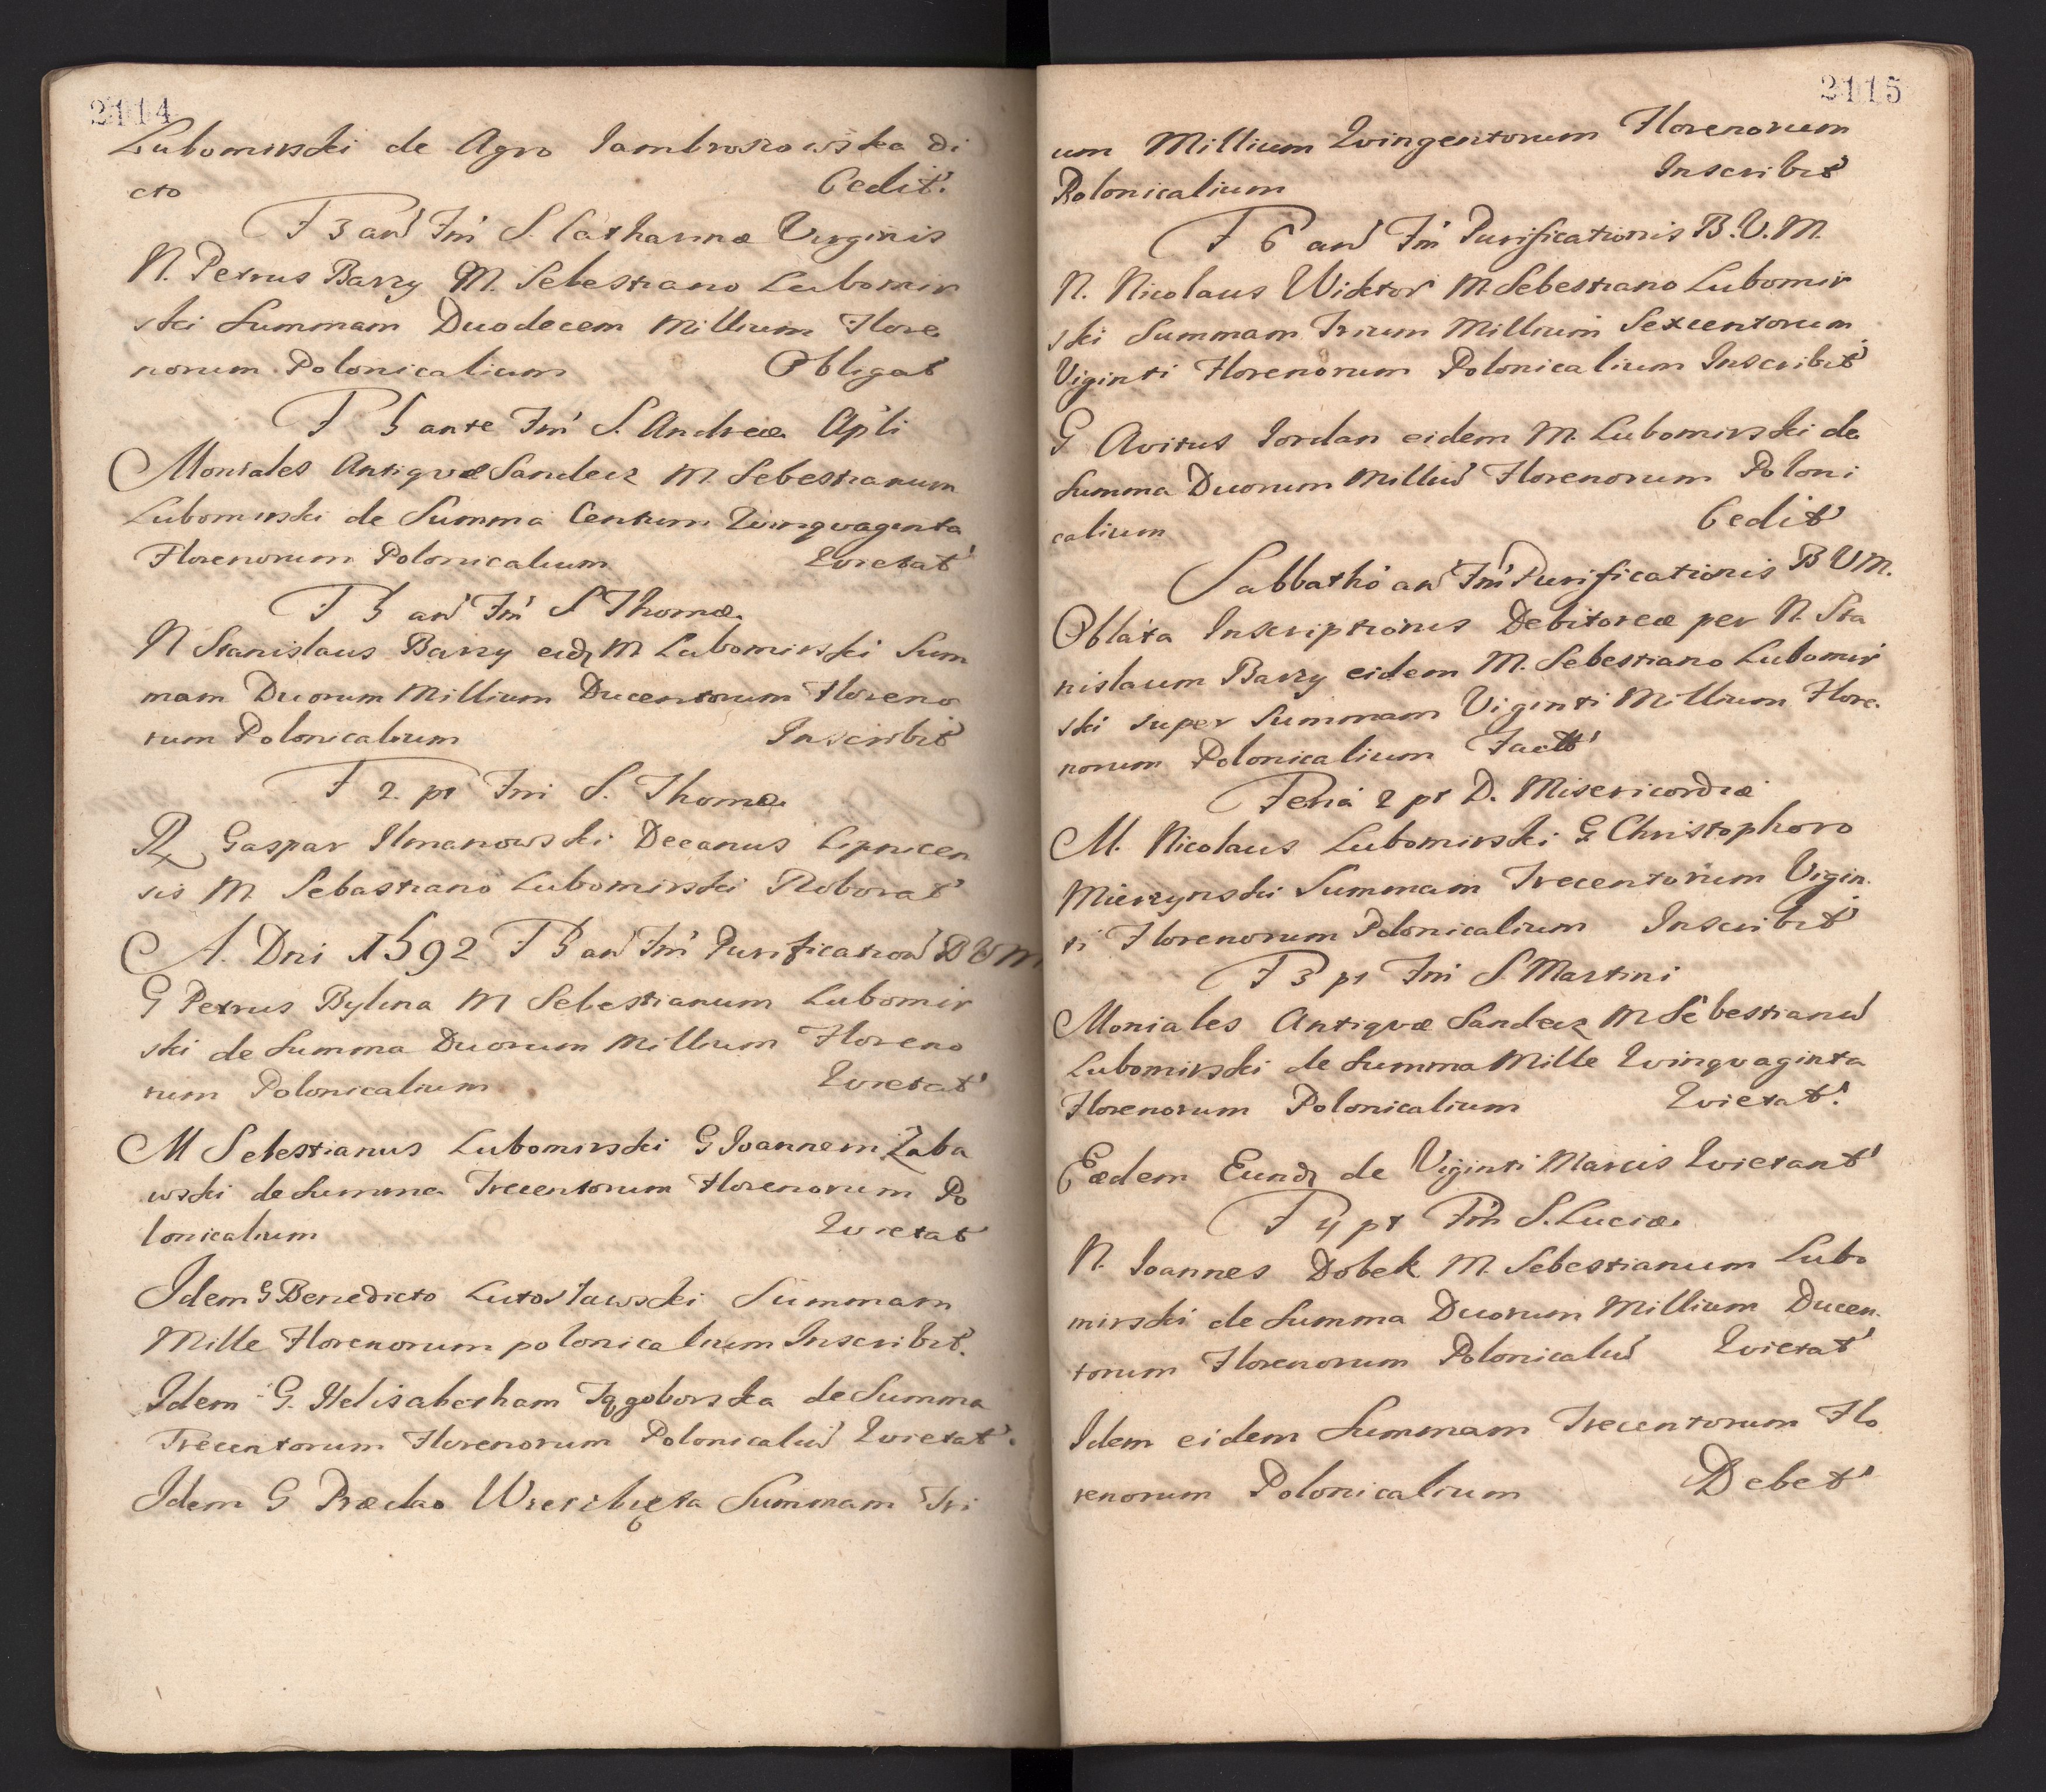 2114
Lubomirski de Agro Jambroszowska di
cto Cedit.
F 3 an Fm S. Catharinæ Virginis
N. Petrus Barzy M. Sebestiano Lubomir
ski Summam Duodecem Millium Flore
norum Polonicalium Obligat
F 5 ante Fm S. Andreæ Apli
Moniales Antiqvæ Sandecz M. Sebestianum
Lubomirski de Summa Centum Qvinqvaginta
Florenorum Polonicalium Qvietat
F 5 an Fm S Thomæ
N Stanislaus Barzy eidz M Lubomirski Sum
mam Duorum Millium Ducentorum Floreno
rum Polonicalium Inscribit
F 2. pt Fm S. Thomæ
R Gaspar Ilmanowski Decanus Lipnicen
sis M Sebastiano Lubomirski Roborat
A. Dni 1592 F 5 an Fm Purification B V M
G Petrus Bylina M Sebestianum Lubomir
ski de Summa Duorum Millium Floreno
rum Polonicalium Qvietat
M Sebestianus Lubomirski G Joannem Zaba
wski de Summa Trecentorum Florenorum Po
lonicalium Qvietat
Idem G Benedicto Lutosławski Summam
Mille Florenorum polonicalium Inscribit.
Idem G. Helisabetham Tęgoborska de Summa
Trecentorum Florenorum Polonicaliu Qvietat.
Idem G Præclao Wierzbięta Summam Tri
2115
um Millium Qvingentorum Florenorum
Polonicalium Inscribit
F 6 an Fm Purificationis B. V. M.
N. Nicolaus Wiktor M. Sebestiano Lubomir
ski Summam Trium Millium Sexcentorum
Viginti Florenorum Polonicalium Inscribit
G Avitus Jordan eidem M. Lubomirski de
Summa Duorum Milliu Florenorum Poloni
calium Cedit
Sabbatho an Fm Purificationis B V M.
Oblata Inscriptionis Debitoreæ per N. Sta
nislaum Barzy eidem M. Sebestiano Lubomir
ski super Summam Viginti Millium Flore
norum Polonicalium Factt
Feria 2 pt D. Misericordiæ
M. Nicolaus Lubomirski G Christophoro
Mierzynski Summam Trecentorum Vigin
ti Florenorum Polonicalium Inscribit
F 3 pt Fm S Martini
Moniales Antiqvæ Sandecz M Sebestianu
Lubomirski de Summa Mille Qvinqvaginta
Florenorum Polonicalium Qvietat.
Eædem Eundz de Viginti Marcis Qvietant
F 4 pt Fm S. Luciæ
N. Joannes Dobek M. Sebestianum Lubo
mirski de Summa Duorum Millium Ducen
torum Florenorum Polonicaliu Qvietat
Idem eidem Summam Trecentorum Flo
renorum Polonicalium Debet